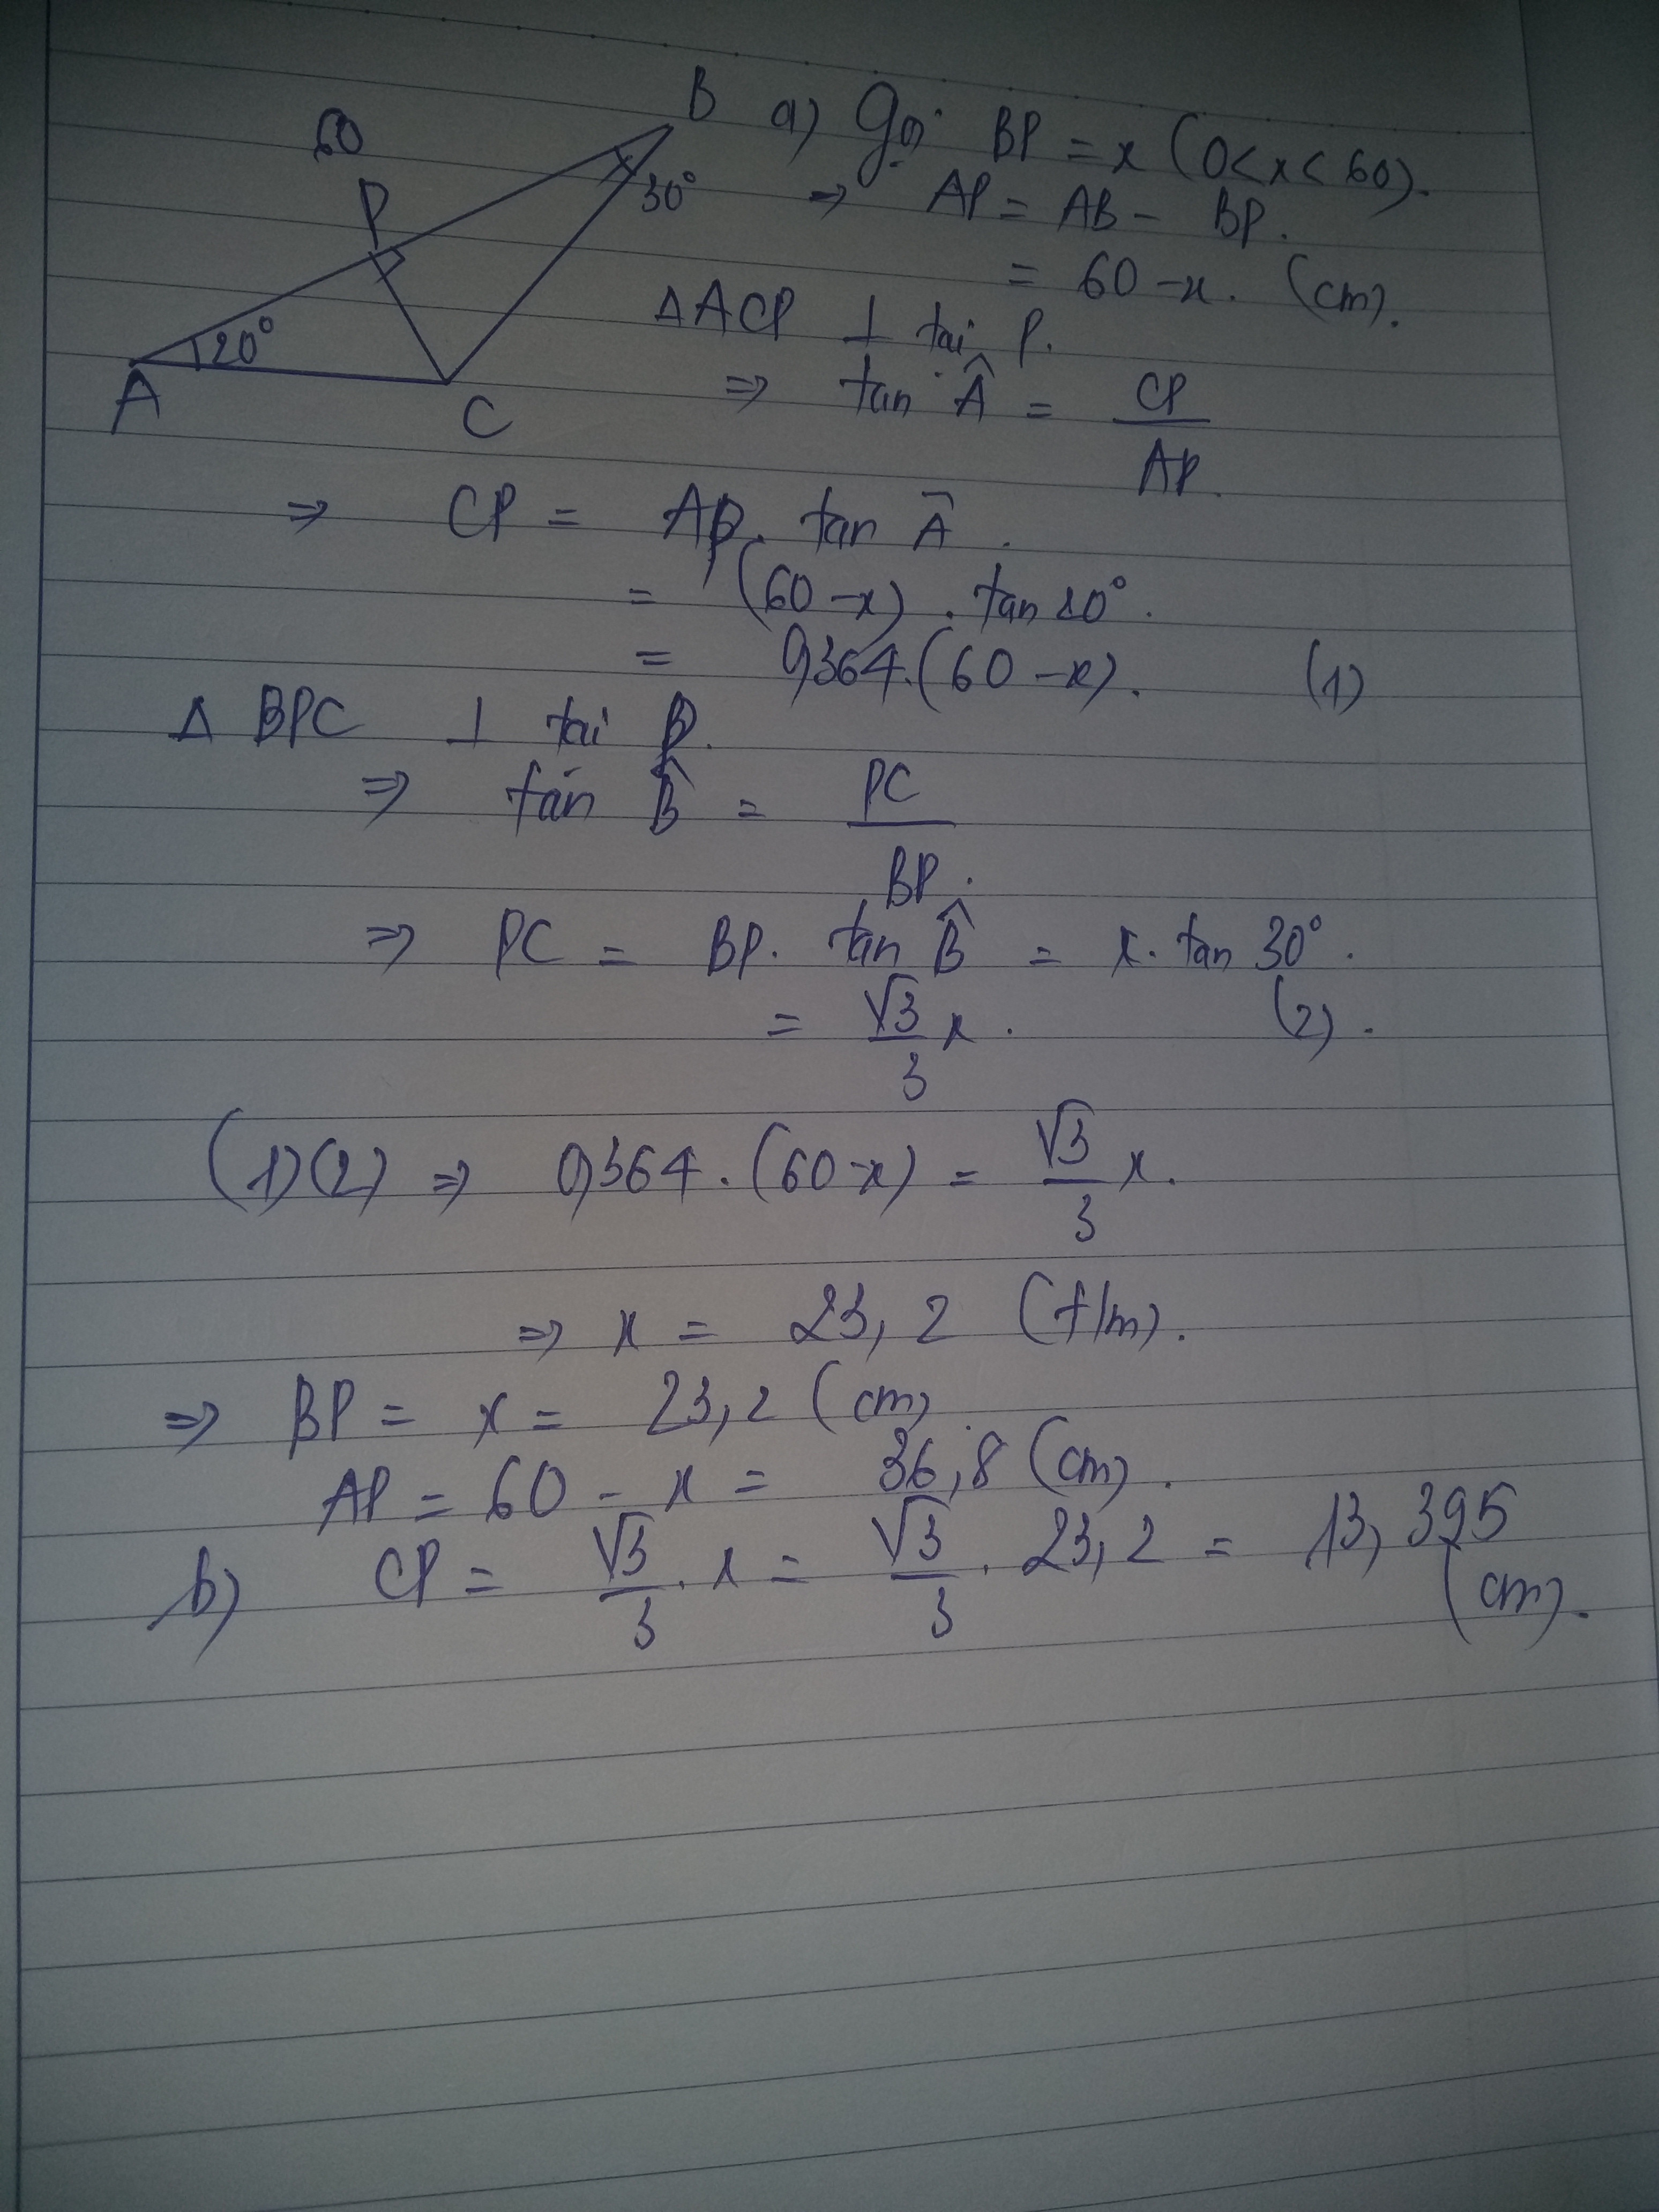 60
B
P
30°
20°
A
C
a) Gọi BP = x (0<x<60).
⇒ AP = AB - BP.
= 60 - x. (cm).
ΔACP ⊥ tại P.
⇒ tan Â = CP / AP.
⇒ CP = AP. tan Â.
= (60 - x) . tan 20°.
= 0,364.(60 - x). (1)
Δ BPC ⊥ tại P.
⇒ tan B̂ = PC / BP.
⇒ PC = BP. tan B̂ = x. tan 30°.
= √3/3 x. (2).
(1)(2) ⇒ 0,364.(60-x) = √3/3 x.
⇒ x = 23,2 (t/m).
⇒ BP = x = 23,2 (cm)
AP = 60 - x = 36,8 (cm).
b) CP = √3/3 . x = √3/3 . 23,2 = 13,395
(cm).